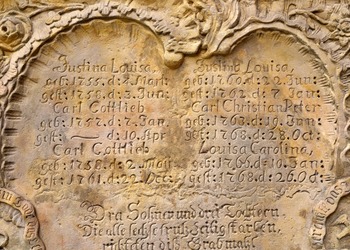 Justina Louisa,
geb: 1755. d: 7. Mart:
gest: 1755. d: 3. Jun:
Carl Gottlieb
geb: 1757. d: 7. Jan:
gest: — d: 10. Apr:
Carl Gottlieb
geb: 1758. d: 2. May
gest: 1761. d: 22. Oct:
Justina Louisa,
geb: 1760. d: 22. Jun:
gest: 1762. d: 7. Jan:
Carl Christian Peter
geb: 1763. d: 19. Jun:
gest: 1768. d: 28. Oct:
Louisa Carolina,
geb: 1766. d: 19. Jan:
gest: 1768. d: 26. Oct:
Drei Söhne und drei Töchtern,
Die alle sechs früh seelig starben,
dis Grabmahl